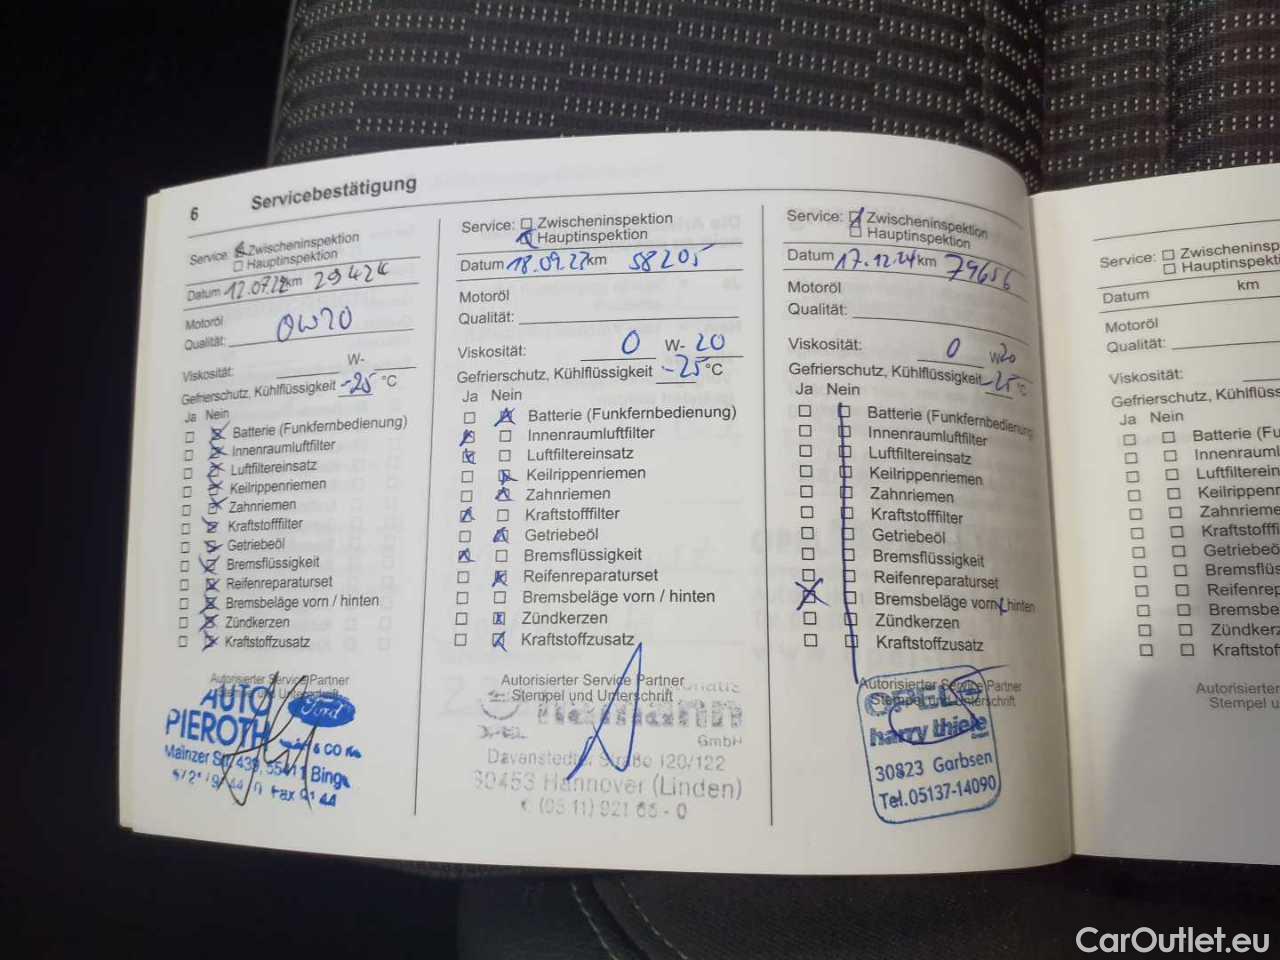 6 Servicebestätigung
Service: Zwischeninspektion
Hauptinspektion
Datum 12.07.22 km 29424
Motoröl
Qualität: 0W20
Viskosität: W-
Gefrierschutz, Kühlflüssigkeit -25 °C
Ja Nein
Batterie (Funkfernbedienung)
Innenraumluftfilter
Luftfiltereinsatz
Keilrippenriemen
Zahnriemen
Kraftstofffilter
Getriebeöl
Bremsflüssigkeit
Reifenreparaturset
Bremsbeläge vorn / hinten
Zündkerzen
Kraftstoffzusatz
Autorisierter Service Partner
Stempel und Unterschrift
AUTO Ford
PIEROTH
& CO
Mainzer Str. 439, 55411 Bing
Fax
Service: Zwischeninspektion
Hauptinspektion
Datum 18.09.23 km 58205
Motoröl
Qualität:
Viskosität: 0 W- 20
Gefrierschutz, Kühlflüssigkeit -25 °C
Ja Nein
Batterie (Funkfernbedienung)
Innenraumluftfilter
Luftfiltereinsatz
Keilrippenriemen
Zahnriemen
Kraftstofffilter
Getriebeöl
Bremsflüssigkeit
Reifenreparaturset
Bremsbeläge vorn / hinten
Zündkerzen
Kraftstoffzusatz
Autorisierter Service Partner
Stempel und Unterschrift
GmbH
Davenstedter Straße 120/122
30453 Hannover (Linden)
(05 11) 921 65 - 0
Service: Zwischeninspektion
Hauptinspektion
Datum 17.12.24 km 79656
Motoröl
Qualität:
Viskosität: 0 W20
Gefrierschutz, Kühlflüssigkeit -25 °C
Ja Nein
Batterie (Funkfernbedienung)
Innenraumluftfilter
Luftfiltereinsatz
Keilrippenriemen
Zahnriemen
Kraftstofffilter
Getriebeöl
Bremsflüssigkeit
Reifenreparaturset
Bremsbeläge vorn / hinten
Zündkerzen
Kraftstoffzusatz
Autorisierter Service Partner
Stempel und Unterschrift
harry thiele
30823 Garbsen
Tel.05137-14090
Service: Zwischeninsp
Hauptinspekti
Datum km
Motoröl
Qualität:
Viskosität:
Gefrierschutz, Kühlflüss
Ja Nein
Batterie (Fu
Innenrauml
Luftfilterein
Keilrippenr
Zahnrieme
Kraftstoffi
Getriebeö
Bremsflüs
Reifenrep
Bremsbe
Zündkerz
Kraftstof
Autorisierter
Stempel u
CarOutlet.eu